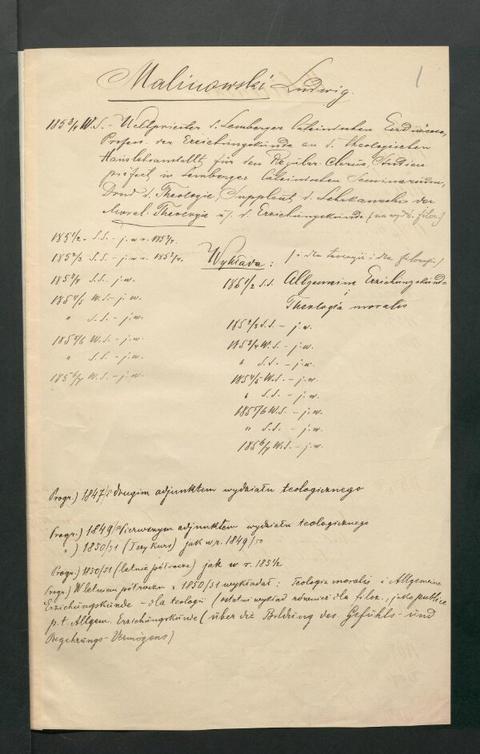 Malinowski Ludwig.
1
W.S. - Weltpriester d. Lemberger lateinischen Erzdiöcese,
Profess. der Erziehungskunde an d. theologischen
Hauslehranstalt für den Regular Clerus, Studien
präfect im Lemberger lateinischen Seminarium,
Doct d. Theologie, Supplent d. Lehrkanzlei der
Moral Theologie u. d. Erziehungskunde (na wydz. filoz.)
1851/2 - S.S. - j.w. r.
S.S. - j.w. r.
S.S. j.w.
W.S. - j.w.
" S.S. - j.w.
W.S. - j.w.
" S.S. - j.w.
W.S. - j.w.
Wykłada: (i dla teologii i dla filozofii)
1851/2 S.S. Allgemeine Erziehungskunde
i
Theologia moralis
1852/3 S.S. - j.w.
1853/4 W.S. - j.w.
" S.S. - j.w.
1854/5 W.S. - j.w.
" S.S. - j.w.
W.S. - j.w.
" S.S. - j.w.
1856/7 W.S. - j.w.
Progr.) 1847/8 drugim adjunktem wydziału teologicznego
Progr.) 1849/ pierwszym adjunktem wydziału teologicznego
") 1850/51 (I kurs) jak w r. 1849/50
Progr.) 1850/51 (letnie półrocze) jak w r. 1851/2
Progr.) W letniem półroczu r. 1850/51 wykładał: Teologia moralis i Allgemeine
Erziehungskunde - dla teologii (ostatni wykład również dla filoz., i dla publice
p.t. Allgem. Erziehungskunde (über die Bildung des Gefühls- und
Begehrungs-Vermögens)